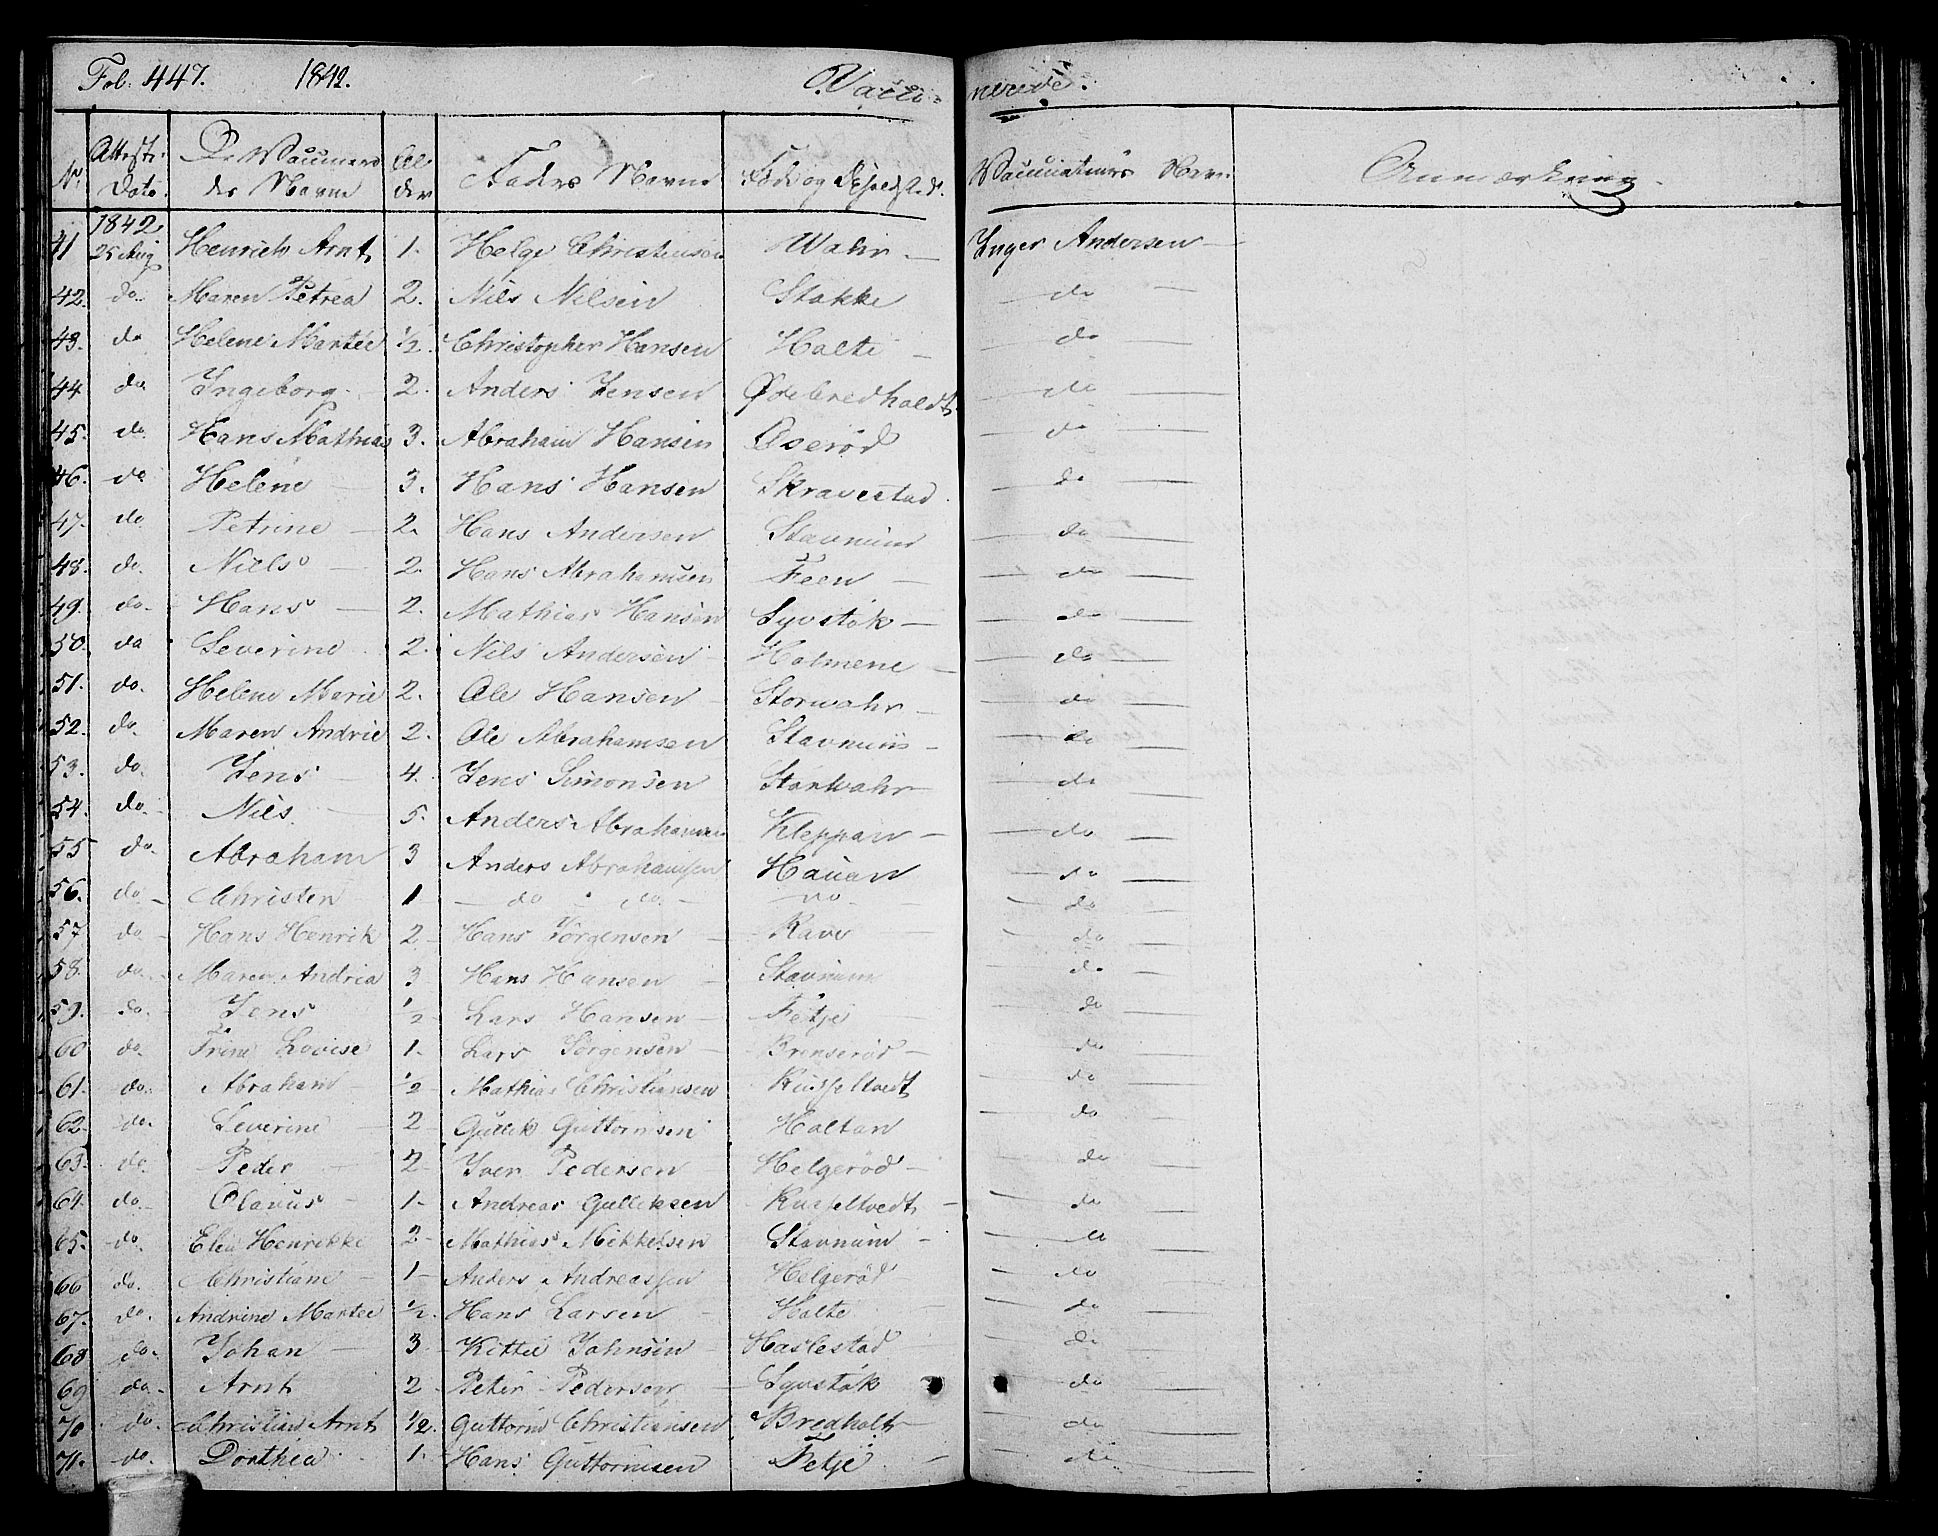 Fol. 447. 1842. Vacci= nerede.
No. Attest: Dato. De Vaccinerede des Navne Alder Faders Navne Føde og Opholds. Vaccinateurs Navn. Anmærkning.
1842
41 25 Aug Henrich Arnt 1. Helge Christensen Wahr — Inger Andersen —
42. do. Maren Petrea 2. Nils Nilsen Stokke — do —
43. do Helene Martée 1/2. Christopher Hansen Holte — do —
44 do Ingeborg 2. Anders Jensen Ødebredholdt — do —
45. do. Hans Mathias 3. Abraham Hansen Øserød — do —
46. do Helene 3. Hans Hansen Skravestad. — do —
47. do Petrine — 2. Hans Andersen Stavnum — do —
48. do. Niels — 2. Hans Abrahamsen Feen — do —
49. do. Hans — 2. Mathias Hansen Lyvstøk — do —
50. do Severine 2. Nils Andersen Holmene — do —
51. do. Helene Marie 2. Ole Hansen Storwahr — do —
52. do. Maren Andrie 2. Ole Abrahamsen Stavnum — do —
53. do. Jens — 4. Jens Simonsen Storwahr — do —
54. do. — Nils. 5. Anders Abrahamsen Kleppan — do —
55 do. Abraham 3 Anders Abrahamsen Hauan — do —
56. do. — Christen 1 — do — do. — do. — do —
57 do — Hans Henrik 2 — Hans Jørgensen — Rave — do —
58. do. Maren Andrea 3 Hans Hansen — Stavnum — do —
59. do. Jens 1/2 Lars Hansen — Fetje — do —
60 do. Trine Lovise 1. Lars Jørgensen — Brenserød — do —
61. do. Abraham — 1/2 Mathias Christiansen Kusseltvedt — do —
62. do. Severine — 2 Gullik Guttormsen Holtan — do —
63. do. Peder — 2 Iver Pedersen Helgerød — do —
64. do. Olavus — 1 — Andreas Gulliksen Kusseltvedt — do —
65. do. Elen Henrikke 2 — Mathias Mikkelsen Stavnum — do —
66 do. Christiane — 1 — Anders Andreassen Helgerød — do —
67. do. Andrine Martee 1/2. Hans Larsen — Holte — do —
68 do. Johan — 3 Kittil Johnsen — Haslestad — do —
69 do — Arnt 2 — Peter Pedersen — Lyvstøk — do —
70 do. Christian Arnt 1/2. Guttorm Christiansen Bredholt — do —
71. do. Dorthea 1. Hans Guttormsen Fetje — do —